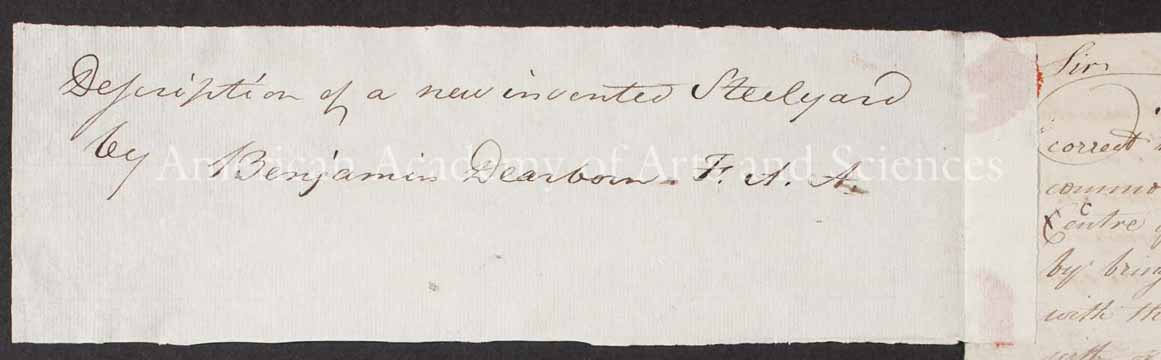 Description of a new invented Steelyard
by Benjamin Dearborn. F. A. A.
American Academy of Arts and Sciences
Sir
correct
commo
Centre
by bring
with th